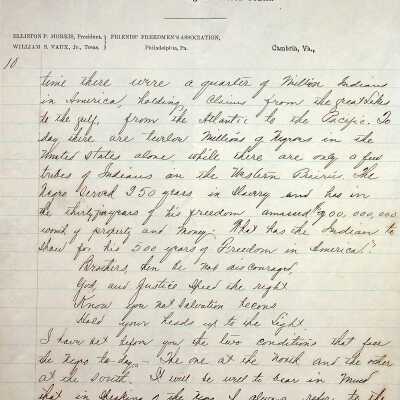 ELLISTON P. MORRIS, President.
WILLIAM S. VAUX, Jr., Treas.
FRIENDS' FREEDMEN'S ASSOCIATION,
Philadelphia, Pa.
Cambria, Va.,
10
time there were a quarter of Million Indians
in America, holding, Claims from the great lakes
to the gulf, from the Atlantic to the Pacific. To
day there are twelve Millions of Negroes in the
United States alone while there are only a few
tribes of Indians on the Western Prairie. The
Negro served 250 years in Slavery and has in
the thirty years of his freedom amassed 900,000,000
worth of property and money. What has the Indian to
show for his 500 years of Freedom in America?
Brothers, then be not discouraged
God, and Justice Speed the right
Know you not Salvation
Hold your heads up to the light
I have set before you the two conditions that face
the Negro to day — The one at the North and the other
at the South. It will be well to bear in Mind
that in speaking of the Negro I always refer to the